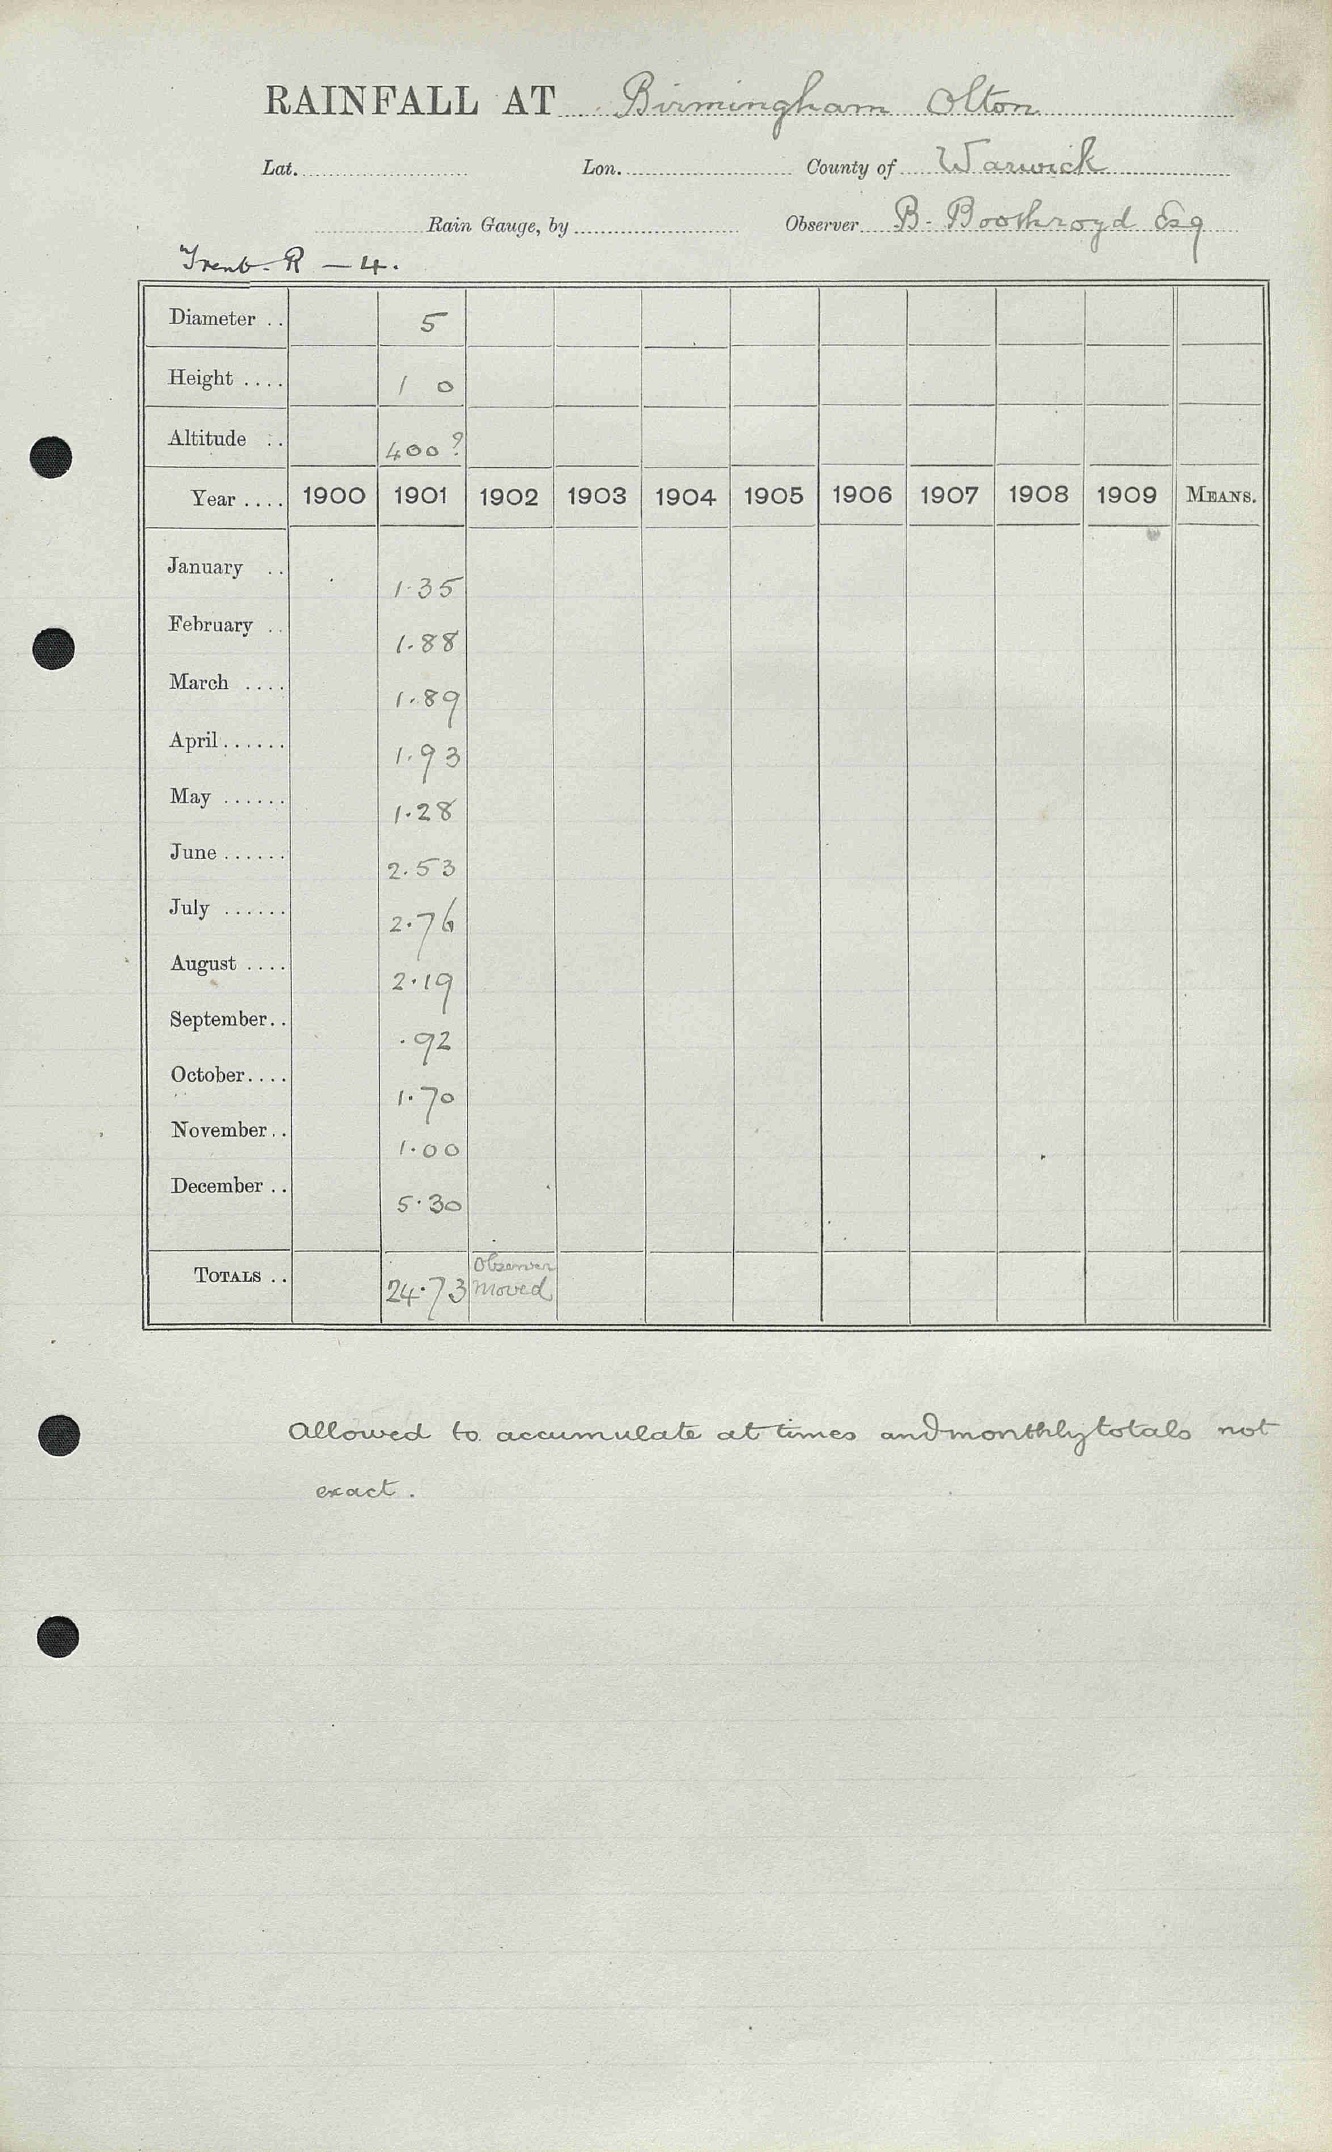 RAINFALL AT Birmingham Olton
Lat. Lon. County of Warwick
Rain Gauge, by Observer B. Boothroyd Esq
Trent. R — 4.
Diameter .. 5
Height .... 1 0
Altitude .. 400?
Year .... 1900 1901 1902 1903 1904 1905 1906 1907 1908 1909 MEANS.
January .. 1.35
February .. 1.88
March .... 1.89
April...... 1.93
May ...... 1.28
June ...... 2.53
July ...... 2.76
August .... 2.19
September.. .92
October.... 1.70
November.. 1.00
December .. 5.30
TOTALS .. 24.73 Observer
moved
Allowed to accumulate at times and monthly totals not
exact.